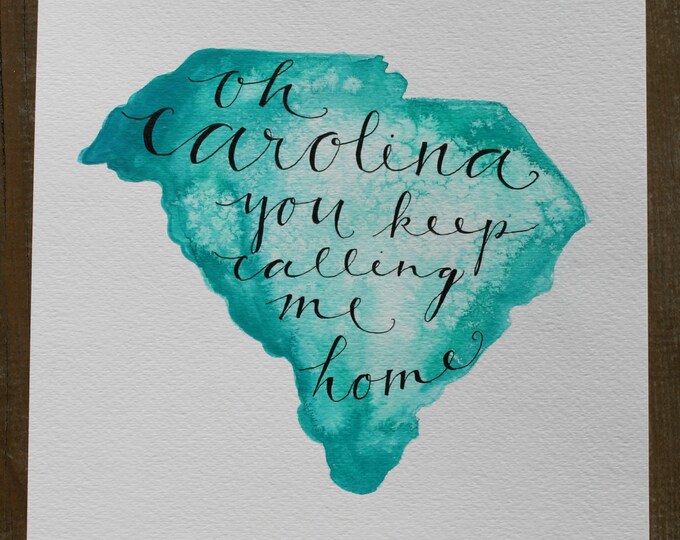 oh
carolina
you keep
calling
me
home